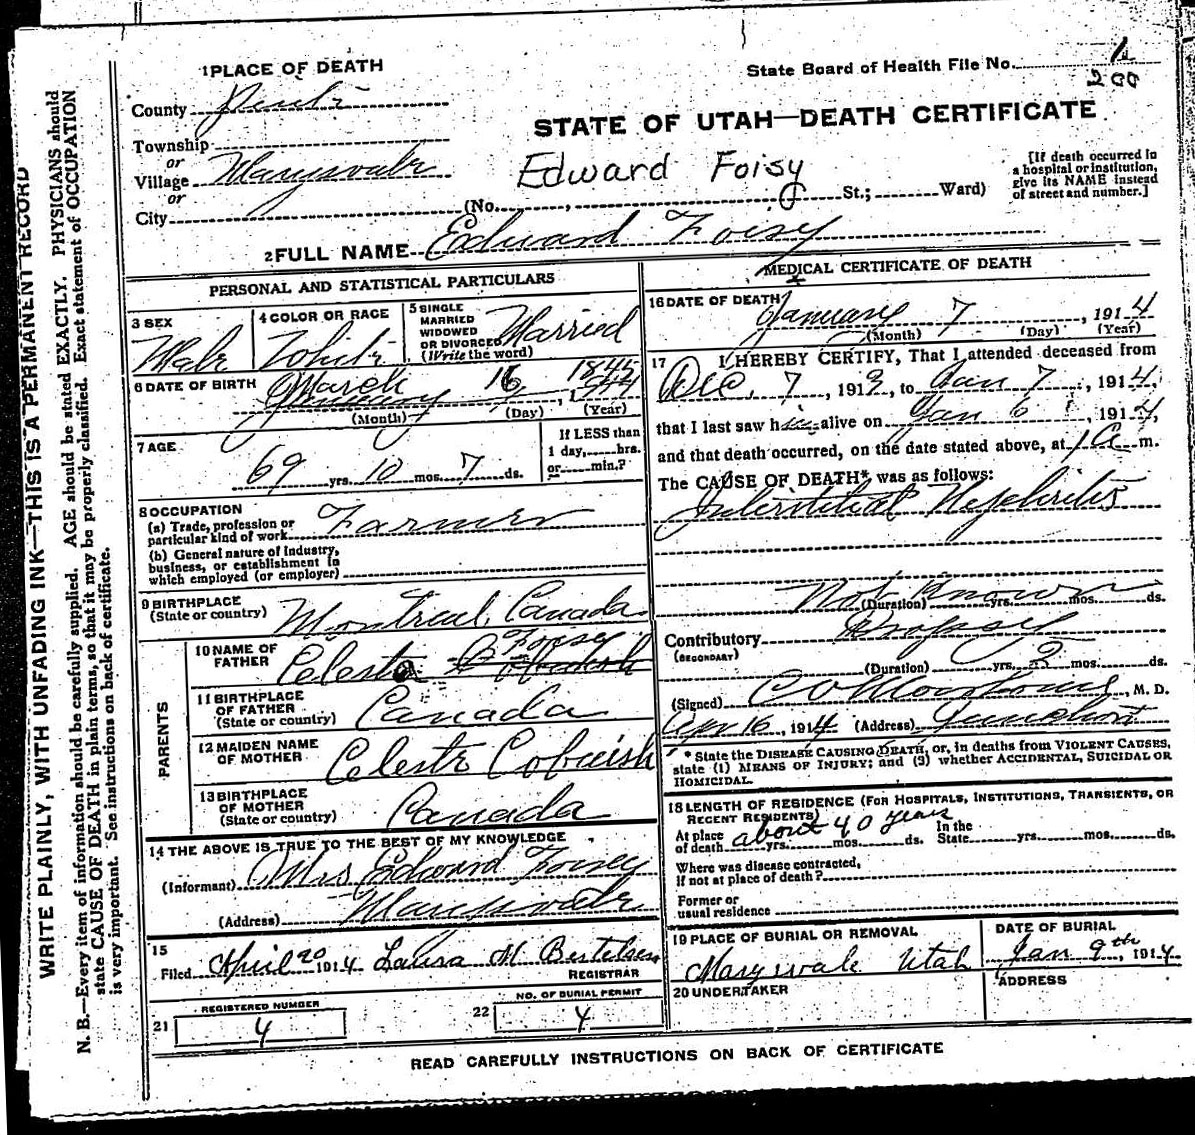 1 PLACE OF DEATH
State Board of Health File No.
200
County Piute
STATE OF UTAH—DEATH CERTIFICATE
Township
or
Village Marysvale
or
City
Edward Foisy
(No. , St.; Ward)
[If death occurred in
a hospital or institution,
give its NAME instead
of street and number.]
2 FULL NAME Edward Foisy
PERSONAL AND STATISTICAL PARTICULARS
3 SEX
Male
4 COLOR OR RACE
White
5 SINGLE
MARRIED
WIDOWED
OR DIVORCED
(Write the word)
Married
6 DATE OF BIRTH
March 16 1844
(Month) (Day) (Year)
7 AGE
69 yrs. 10 mos. 7 ds.
If LESS than
1 day, hrs.
or min.?
8 OCCUPATION
(a) Trade, profession or
particular kind of work Farmer
(b) General nature of industry,
business, or establishment in
which employed (or employer)
9 BIRTHPLACE
(State or country) Montreal, Canada
PARENTS
10 NAME OF
FATHER Celesta Foisey
11 BIRTHPLACE
OF FATHER
(State or country) Canada
12 MAIDEN NAME
OF MOTHER Celeste Cobuish
13 BIRTHPLACE
OF MOTHER
(State or country) Canada
14 THE ABOVE IS TRUE TO THE BEST OF MY KNOWLEDGE
(Informant) Mrs Edward Foisey
(Address) Marysvale
15
Filed April 20 1914 Laura M. Bertelsen
REGISTRAR
21 REGISTERED NUMBER
4
22 NO. OF BURIAL PERMIT
4
MEDICAL CERTIFICATE OF DEATH
16 DATE OF DEATH
January 7, 1914
(Month) (Day) (Year)
17 I HEREBY CERTIFY, That I attended deceased from
Dec. 7, 1913, to Jan 7, 1914,
that I last saw him alive on Jan 6, 1914,
and that death occurred, on the date stated above, at 1 a m.
The CAUSE OF DEATH* was as follows:
Interstitial Nephritis
Not Known
(Duration) yrs. mos. ds.
Contributory Dropsy
(SECONDARY)
(Duration) yrs. 2 mos. ds.
(Signed) , M. D.
Apr 16, 1914 (Address) Junction
* State the DISEASE CAUSING DEATH, or, in deaths from VIOLENT CAUSES,
state (1) MEANS OF INJURY; and (2) whether ACCIDENTAL, SUICIDAL OR
HOMICIDAL.
18 LENGTH OF RESIDENCE (FOR HOSPITALS, INSTITUTIONS, TRANSIENTS, OR
RECENT RESIDENTS)
At place
of death about 40 years yrs. mos. ds.
In the
State yrs. mos. ds.
Where was disease contracted,
if not at place of death?
Former or
usual residence
19 PLACE OF BURIAL OR REMOVAL
Marysvale Utah
DATE OF BURIAL
Jan 9th, 1914
20 UNDERTAKER
ADDRESS
READ CAREFULLY INSTRUCTIONS ON BACK OF CERTIFICATE
WRITE PLAINLY, WITH UNFADING INK—THIS IS A PERMANENT RECORD
N. B.—Every item of information should be carefully supplied. AGE should be stated EXACTLY. PHYSICIANS should
state CAUSE OF DEATH in plain terms, so that it may be properly classified. Exact statement of OCCUPATION
is very important. See instructions on back of certificate.